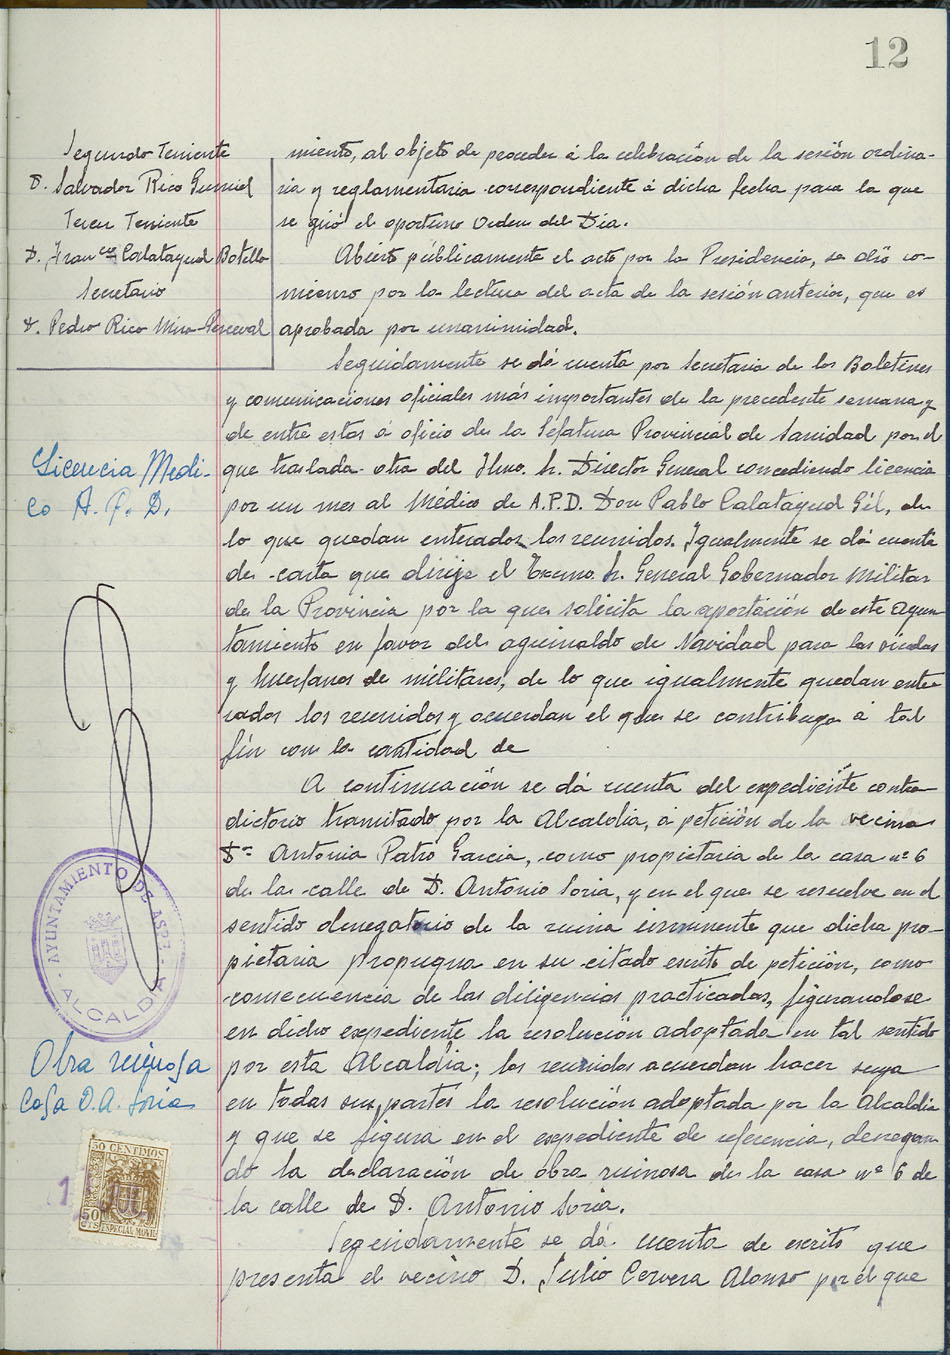 12
Segundo Teniente
D. Salvador Rico Gumiel
Tercer Teniente
D. Franco Calatayud Botella
Secretario
D. Pedro Rico Mira-Perceval
miento, al objeto de proceder á la celebración de la sesión ordina-
ria y reglamentaria correspondiente á dicha fecha para la que
se giró el oportuno Orden del Día.
Abierto públicamente el acto por la Presidencia, se dió co-
mienzo por la lectura del acta de la sesión anterior, que es
aprobada por unanimidad.
Seguidamente se dá cuenta por Secretaria de los Boletines
y comunicaciones oficiales más importantes de la precedente semana y
de entre estas á oficio de la Jefatura Provincial de Sanidad por el
que traslada otra del Ilmo. Sr. Director General concediendo licencia
por un mes al Médico de A.P.D. Don Pablo Calatayud Gil, de
lo que quedan enterados los reunidos. Igualmente se dá cuenta
de carta que dirije el Excmo. Sr. General Gobernador Militar
de la Provincia por la que solicita la aportación de este Ayun-
tamiento en favor del aguinaldo de Navidad para las viudas
y huerfanos de militares, de lo que igualmente quedan ente-
rados los reunidos y acuerdan el que se contribuya á tal
fín con la cantidad de
A continuación se dá cuenta del expediente contra-
dictorio tramitado por la Alcaldia, á petición de la vecina
Dª Antonia Patró Garcia, como propietaria de la casa nº 6
de la calle de D. Antonio Soria, y en el que se resuelve en el
sentido denegatorio de la ruina inminente que dicha pro-
pietaria propugna en su citado escrito de petición, como
consecuencia de las diligencias practicadas, figurandose
en dicho expediente la resolución adoptada en tal sentido
por esta Alcaldia; los reunidos acuerdan hacer suya
en todas sus partes la resolución adoptada por la Alcaldia
y que se figura en el expediente de referencia, denegan-
do la declaración de obra ruinosa de la casa nº 6 de
la calle de D. Antonio Soria.
Segendamente se dá cuenta de escrito que
presenta el vecino D. Julio Cervera Alonso por el que
Licencia Medi-
co A. P. D.
AYUNTAMIENTO DE ASPE
ALCALDIA
Obra ruinosa
Casa D. A. Soria
50 CENTIMOS
50
CTS ESPECIAL MOVIL
1